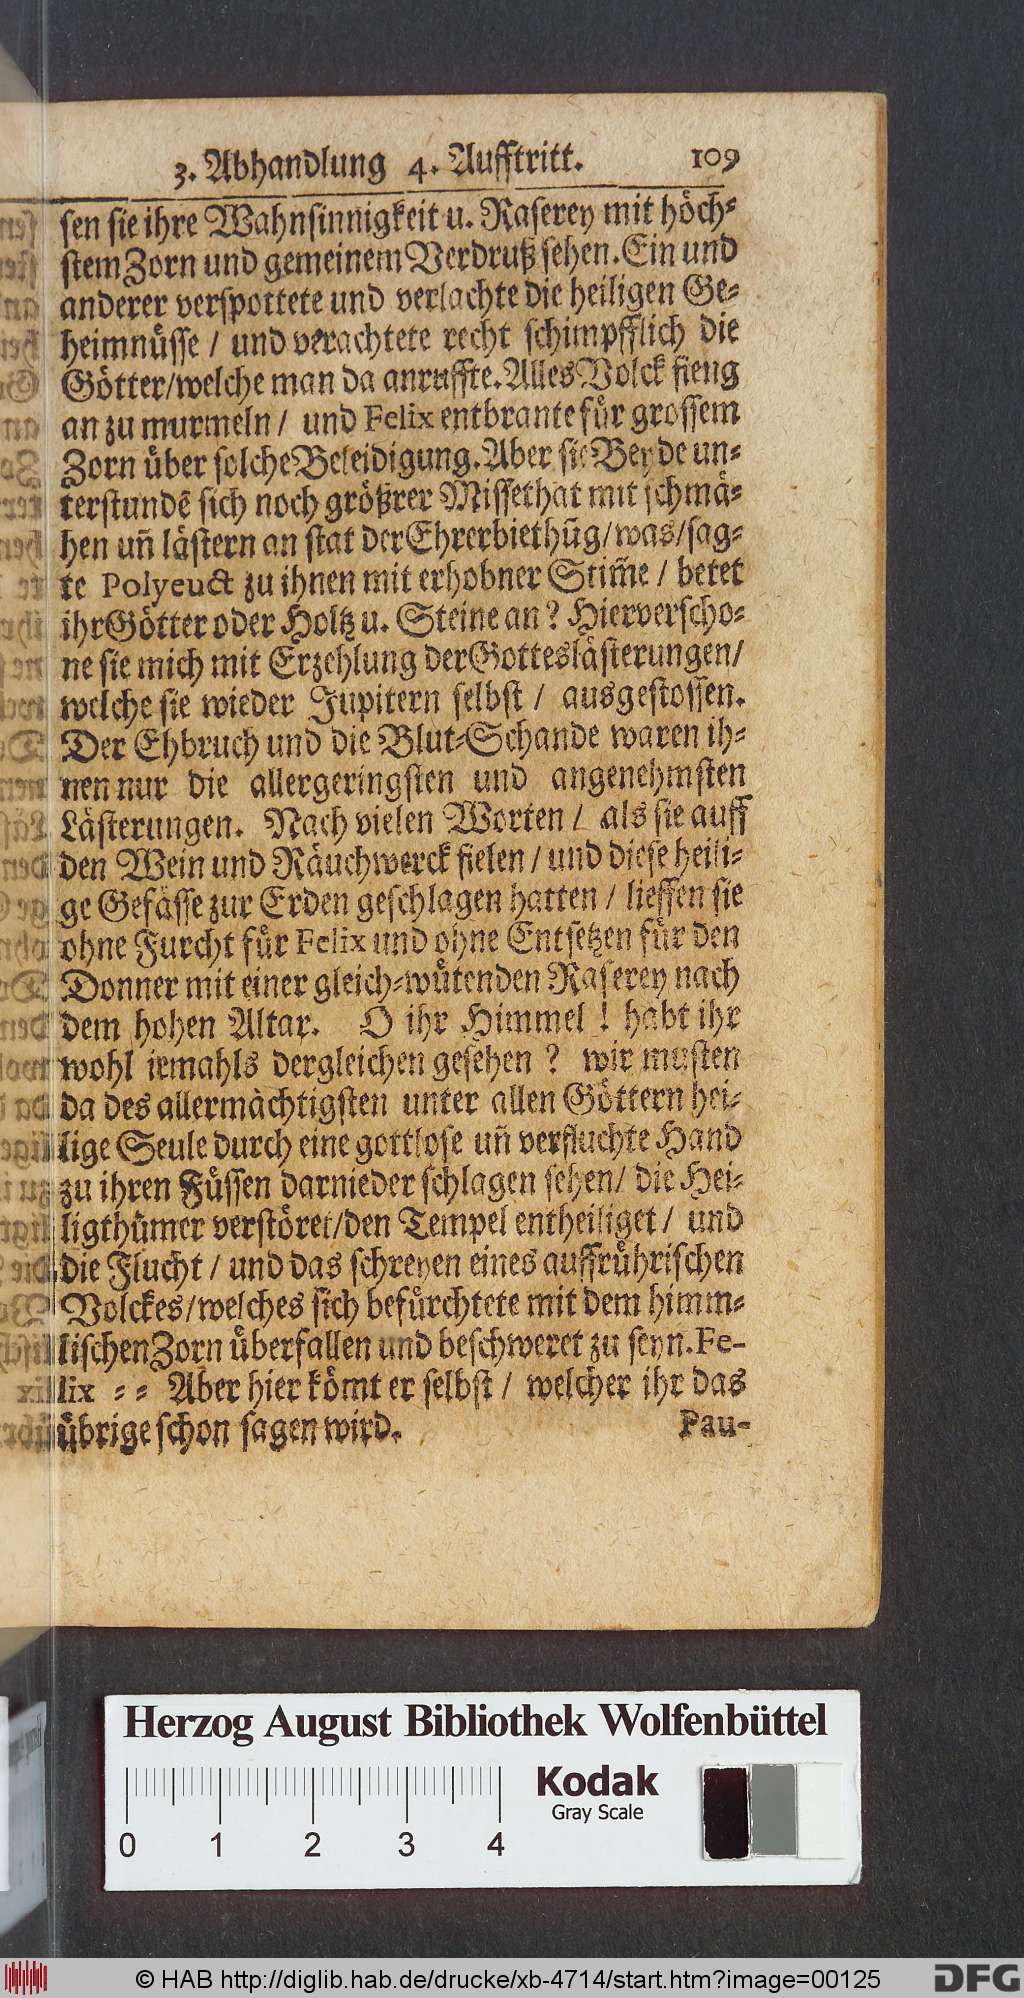 3. Abhandlung 4. Aufftritt. 109
sen sie ihre Wahnsinnigkeit u. Raserey mit höch-
stem Zorn und gemeinem Verdruß sehen. Ein und
anderer verspottete und verlachte die heiligen Ge-
heimnüsse / und verachtete recht schimpfflich die
Götter/welche man da anruffte. Alles Volck fieng
an zu murmeln / und Felix entbrante für grossem
Zorn über solche Beleidigung. Aber sie Beyde un-
terstundē sich noch größrer Missethat mit schmä-
hen uñ lästern an stat der Ehrerbiethūg/was/sag-
te Polyeuct zu ihnen mit erhobner Stim̃e / betet
ihr Götter oder Holtz u. Steine an? Hier verscho-
ne sie mich mit Erzehlung der Gotteslästerungen/
welche sie wieder Jupitern selbst / ausgestossen.
Der Ehbruch und die Blut-Schande waren ih-
nen nur die allergeringsten und angenehmsten
Lästerungen. Nach vielen Worten / als sie auff
den Wein und Räuchwerck fielen / und diese heili-
ge Gefässe zur Erden geschlagen hatten / lieffen sie
ohne Furcht für Felix und ohne Entsetzen für den
Donner mit einer gleich-wütenden Raserey nach
dem hohen Altar. O ihr Himmel ! habt ihr
wohl iemahls dergleichen gesehen ? wir musten
da des allermächtigsten unter allen Göttern hei-
lige Seule durch eine gottlose uñ verfluchte Hand
zu ihren Füssen darnieder schlagen sehen/ die Hei-
ligthümer verstöret/den Tempel entheiliget / und
die Flucht / und das schreyen eines auffrührischen
Volckes/welches sich befürchtete mit dem himm-
lischen Zorn überfallen und beschweret zu seyn. Fe-
lix - - Aber hier kömt er selbst / welcher ihr das
übrige schon sagen wird.
Pau-
Herzog August Bibliothek Wolfenbüttel
Kodak
Gray Scale
0 1 2 3 4
© HAB http://diglib.hab.de/drucke/xb-4714/start.htm?image=00125
DFG